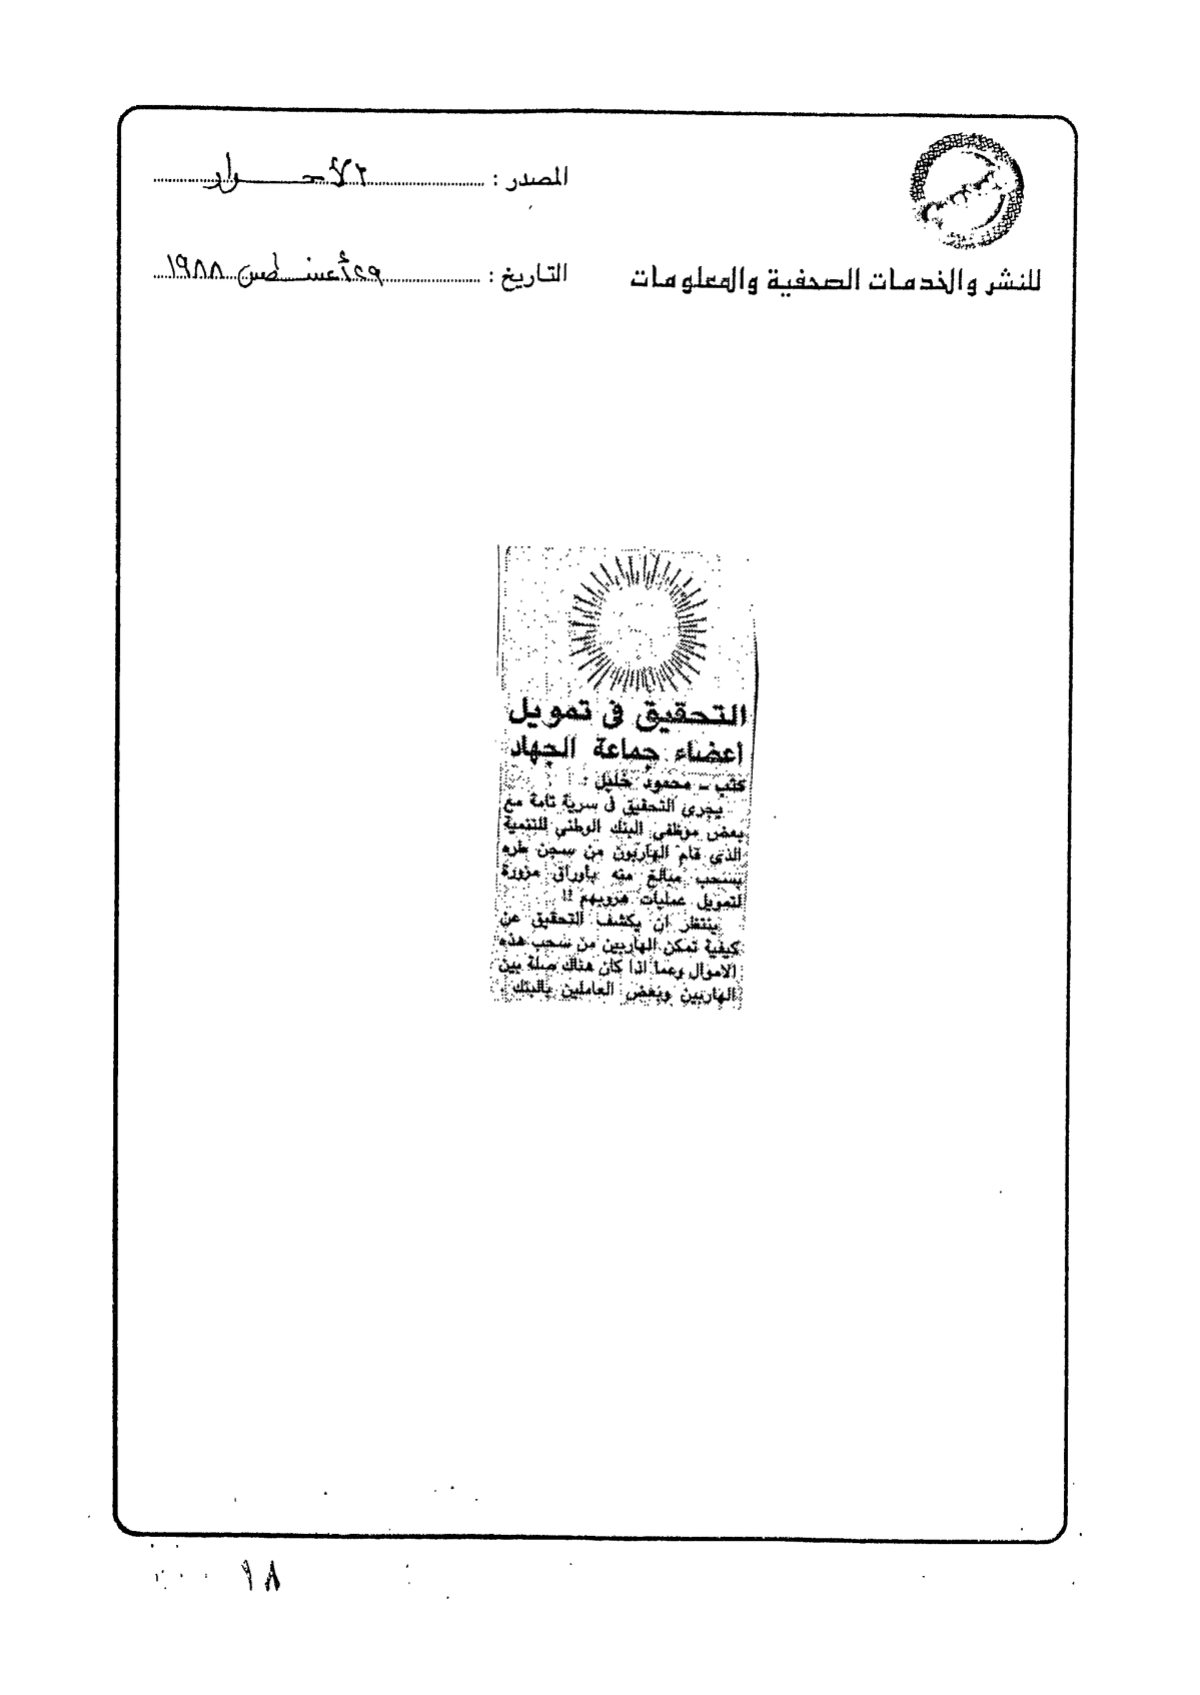 المصدر : الأحرار
التاريخ : ٢٩ أغسطس ١٩٨٨
للنشر والخدمات الصحفية والمعلومات
التحقيق فى تمويل
اعضاء جماعة الجهاد
كتب - محمود خليل :
يجرى التحقيق فى سرية تامة مع
بعض موظفى البنك الوطنى للتنمية
الذى قام الهاربون من سجن طره
بسحب مبالغ منه بأوراق مزورة
لتمويل عمليات هروبهم !!
ينتظر ان يكشف التحقيق عن
كيفية تمكن الهاربين من سحب هذه
الاموال وعما اذا كان هناك صلة بين
الهاربين وبعض العاملين بالبنك .